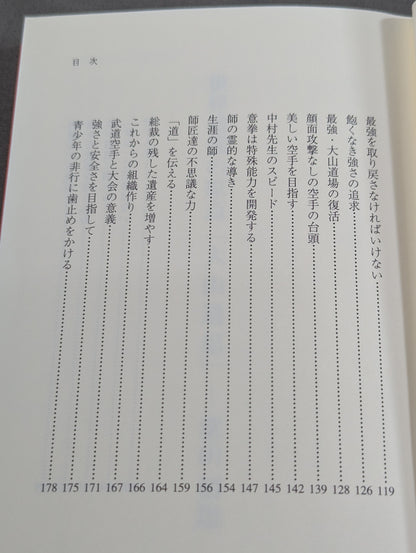 目次
最強を取り戻さなければいけない 119
飽くなき強さの追求 126
最強・大山道場の復活 128
顔面攻撃なしの空手の台頭 139
美しい空手を目指す 142
中村先生のスピード 145
意拳は特殊能力を開発する 147
師の霊的な導き 154
生涯の師 156
師匠達の不思議な力 159
「道」を伝える 164
総裁の残した遺産を増やす 166
これからの組織作り 167
武道空手と大会の意義 171
強さと安全さを目指して 175
青少年の非行に歯止めをかける 178